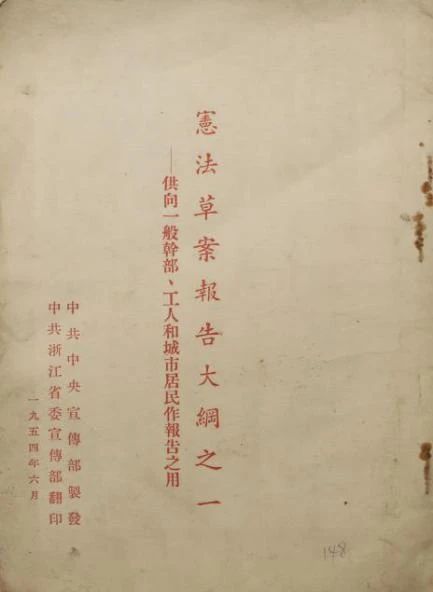 憲法草案報告大綱之一
——供向一般幹部、工人和城市居民作報告之用
中共中央宣傳部製發
中共浙江省委宣傳部翻印
一九五四年六月
148